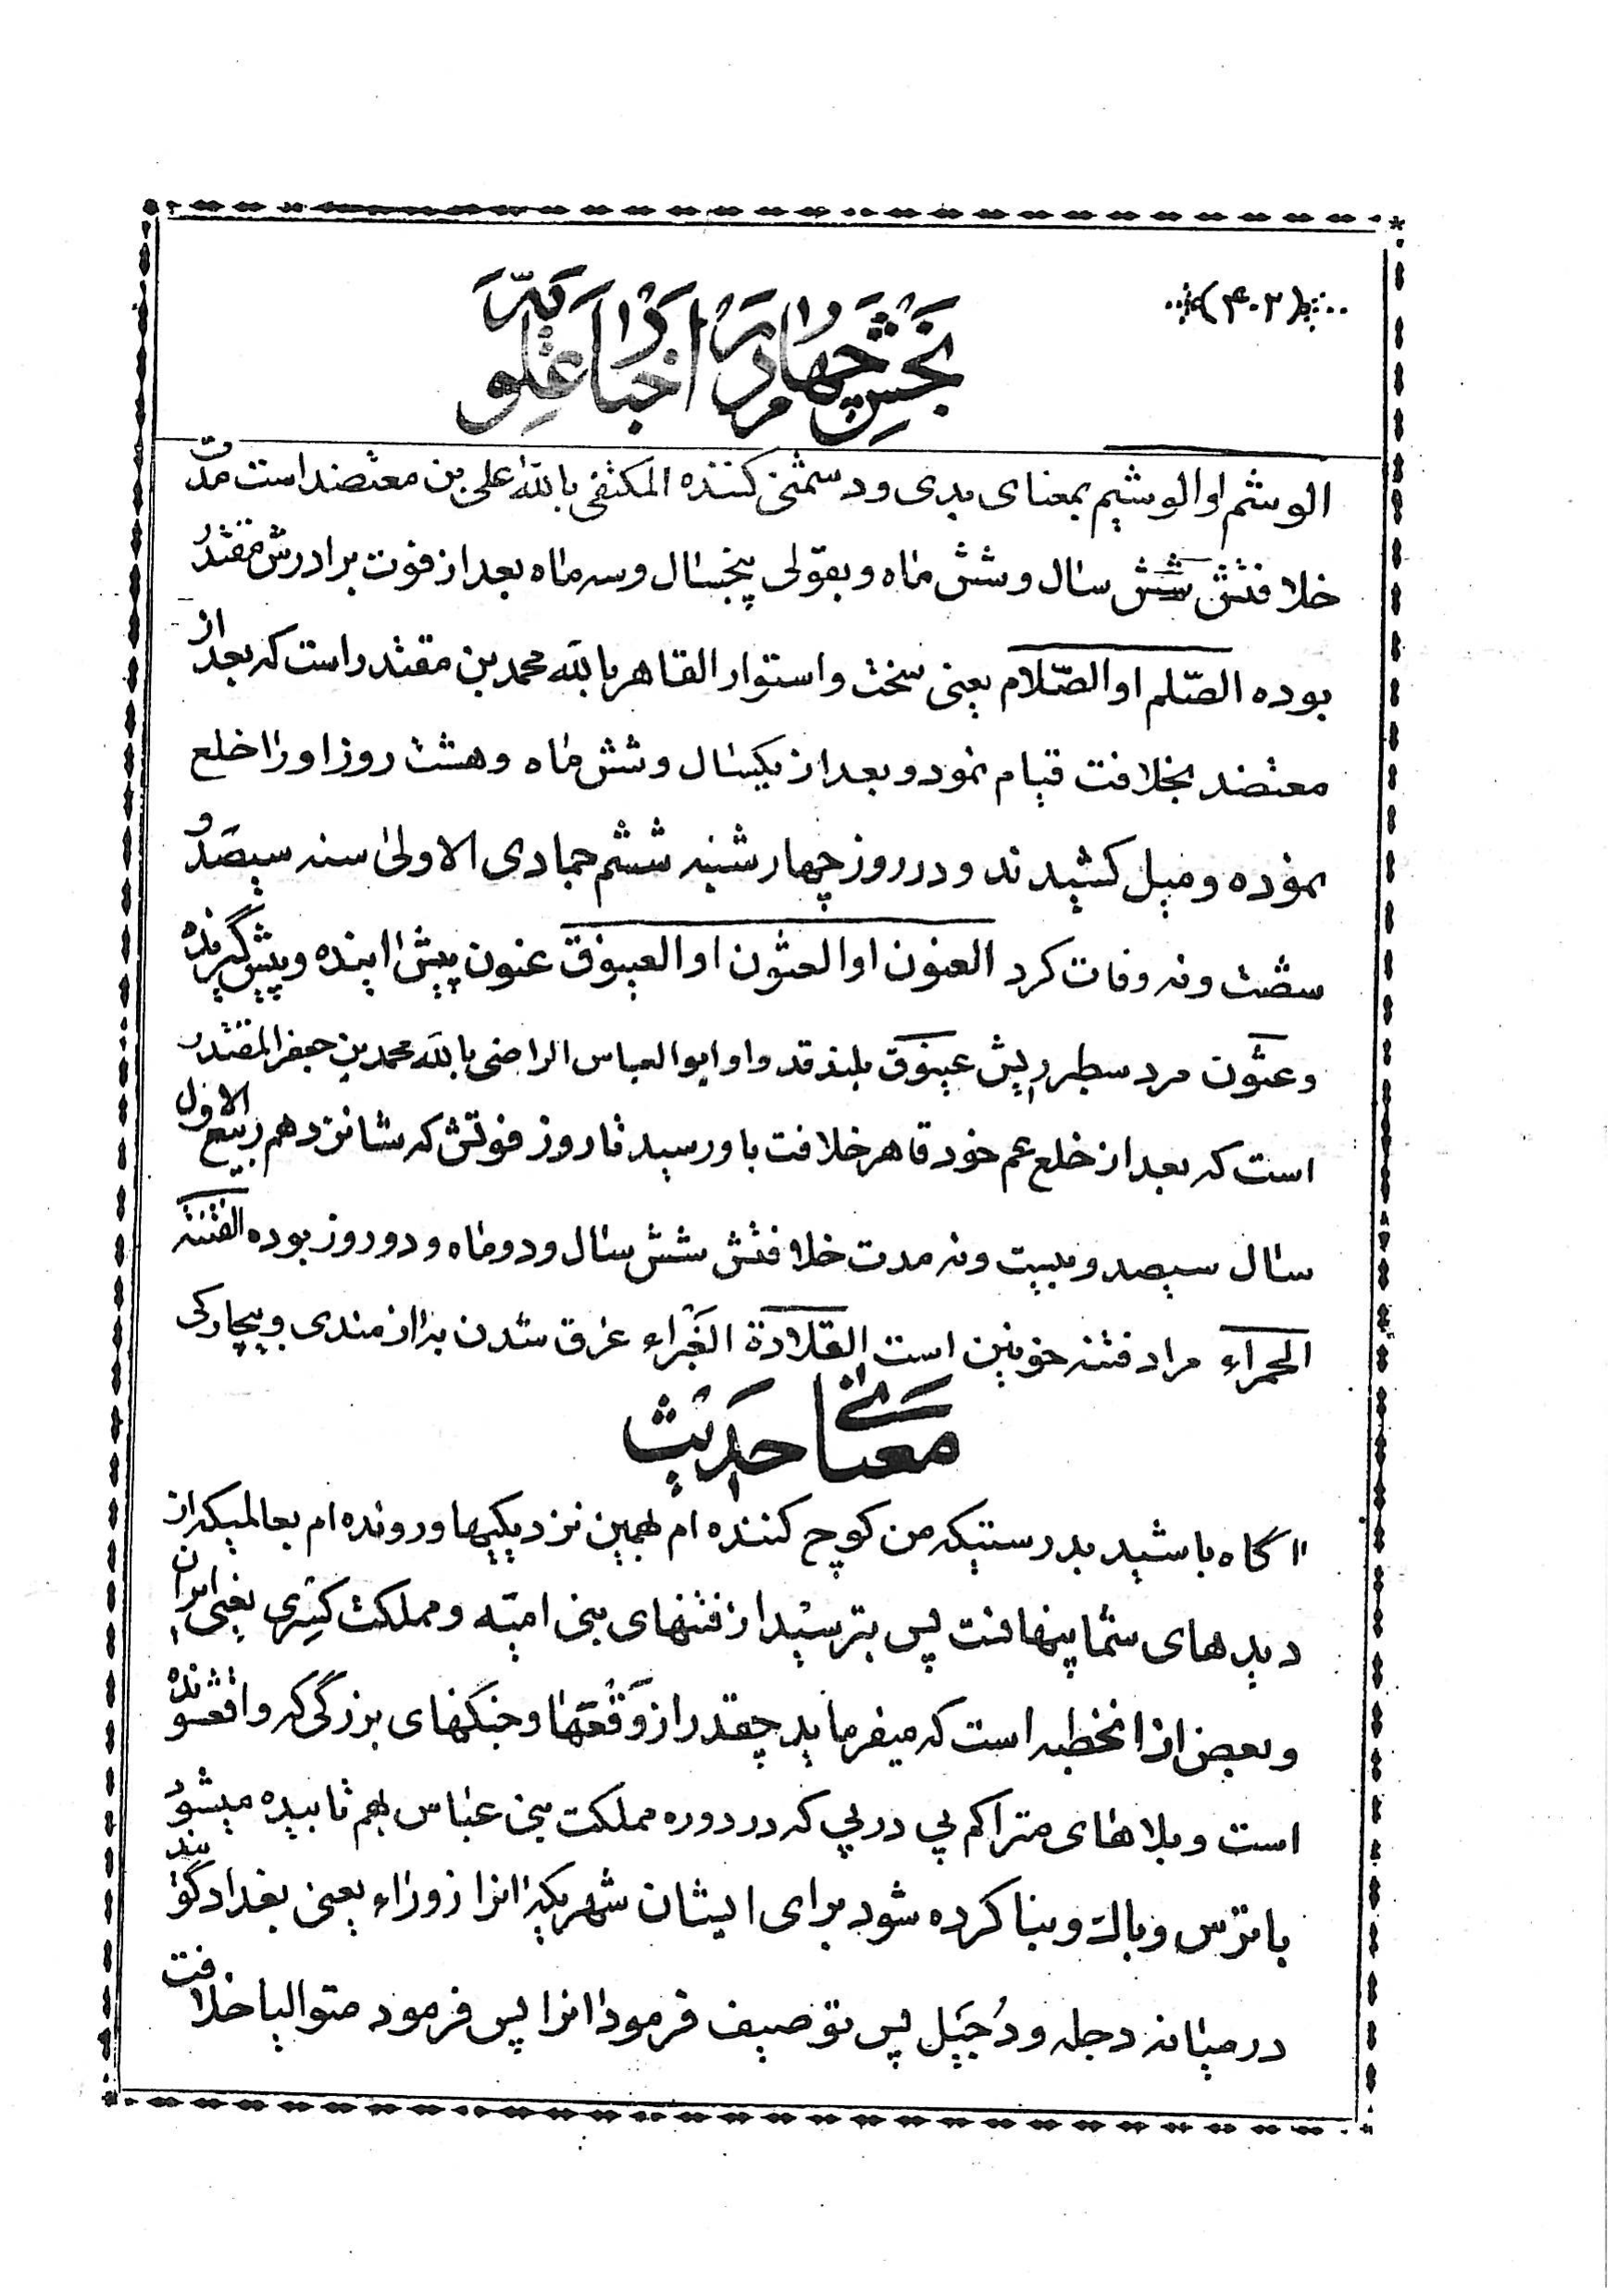 (۴۰۲)
بخش چهارم در اخبار علویه
الوشم او الوشیم بمعنای بدی و دشمنی کننده المکتفی بالله علی بن معتضد است مدت
خلافتش شش سال و شش ماه و بقولی پنجسال و سه ماه بعد از فوت برادرش مقتدر
بوده الصّلم او الصّلام یعنی سخت و استوار القاهر بالله محمد بن مقتدر است که بعد از
معتضد بخلافت قیام نمود و بعد از یکسال و شش ماه و هشت روز او را خلع
نموده و میل کشیدند و در روز چهارشنبه ششم جمادی الاولی سنه سیصد و
شصت و نه وفات کرد العنون او العثون او العینوق عنون پیش اینده و پیش گیرنده
و عثون مرد سطبر ریش عینوق بلند قد و او ابو العباس الراضی بالله محمد بن جعفر المقتدر
است که بعد از خلع عم خود قاهر خلافت باو رسید تا روز فوتش که شانزدهم ربیع الاول
سال سیصد و بیست و نه مدت خلافتش شش سال و دو ماه و دو روز بوده الفتنة
الحمراء مراد فتنه خونین است القلادة الغبراء غرق شدن بنیازمندی و بیچارکی
معنای حدیث
اگاه باشید بدرستیکه من کوچ کننده ام بهمین نزدیکیها و رونده ام بعالمیکه از
دیدهای شما پنهانست پس بترسید از فتنهای بنی امیّه و مملکت کسری یعنی ایران
و بعض از انخطبه است که میفرماید چقدر از وقعتها و جنکهای بزرگی که واقعشونده
است و بلاهای متراکم پی در پی که در دوره مملکت بنی عباس بهم تابیده میشود
با ترس و باک و بنا کرده شود برای ایشان شهریکه انرا زوراء یعنی بغداد گویند
در میانه دجله و دُجَیل پس توصیف فرمود انرا پس فرمود متوالیا خلافت